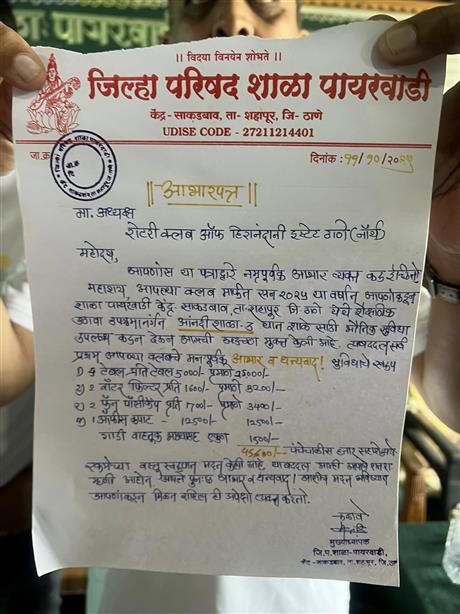 || विद्या विनयेन शोभते ||
जिल्हा परिषद शाळा पायरवाडी
केंद्र - साकडबाव, ता- शहापूर, जि- ठाणे
UDISE CODE - 27211214401
जा.क्र. दिनांक : ११/१०/२०२५
|| आभारपत्र ||
मा. अध्यक्ष
रोटरी क्लब ऑफ हिरानंदानी इस्टेट ठाणे (नॉर्थ)
महोदय,
आपणास या पत्राद्वारे नम्रपूर्वक आभार व्यक्त करू इच्छितो
महाशय, आपल्या क्लब मार्फत सन २०२५ या वर्षात आपणाकडून
शाळा पायरवाडी केंद्र- साकडबाव, ता. शहापूर जि ठाणे येथे शैक्षणिक
उठाव उपक्रमांतर्गत आनंदी शाळा-उ शाळे साठी भौतिक सुविधा
उपलब्ध करून देऊन आमची शाळा केली आहे. त्याबद्दल सर्व
प्रथम आपल्या क्लबचे मनःपूर्वक आभार व धन्यवाद! सुविधांचे स्वरूप
टेबल - प्रति टेबल 5000/- प्रमाणे
२) 2 वॉटर फिल्टर प्रति 1600/- प्रमाणे 3200/-
३) 2 फॅन प्रति 1700/- प्रमाणे 3400/-
४) 1 ऑफीस कपाट - 12500/- 12500/-
गाडी वाहतूक 1500/-
45600/- पंचेचाळीस हजार सहाशे
रकमेच्या वस्तू स्वरूपात मदत केली आहे. याबद्दल आम्ही आपले शतशः
ऋणी आहोत. आपले पुनश्च आभार व धन्यवाद! अशीच मदत भविष्यात
आपणांकडून मिळत राहिल ही अपेक्षा व्यक्त करतो.
कळावे
मुख्याध्यापक
जि.प. शाळा - पायरवाडी,
केंद्र - साकडबाव, ता. शहापूर, जि. ठाणे